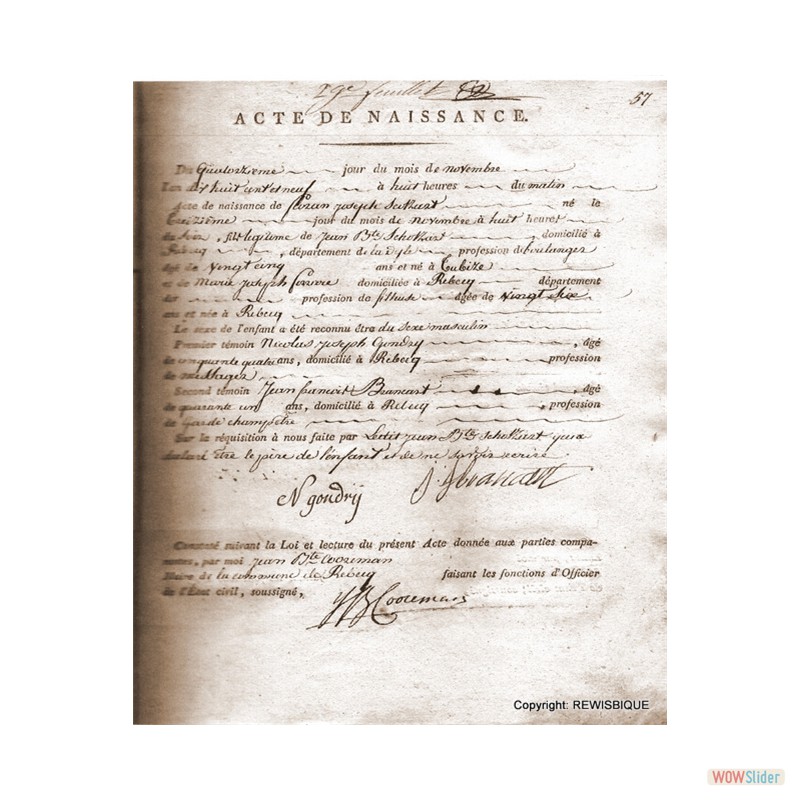 29e feuillet
57
ACTE DE NAISSANCE.
Du Quatorzieme jour du mois de novembre
L'an dix huit cent et neuf à huit heures du matin
Acte de naissance de joseph né le
treizieme jour du mois de novembre à huit heures
du soir, fils legitime de jean Bte Scholkart domicilié à
Rebecq, département de la Dyle, profession de boulanger
âgé de vingt cinq ans et né à Tubize
et de Marie joseph domiciliée à Rebecq département
de profession de âgée de vingt six
ans et née à Rebecq
Le sexe de l'enfant a été reconnu être du sexe masculin
Premier témoin Nicolas joseph Gondry, âgé
de cinquante quatre ans, domicilié à Rebecq profession
de messager
Second témoin jean francois Brancart, âgé
de quarante un ans, domicilié à Rebecq, profession
de garde champêtre
Sur la réquisition à nous faite par Ledit jean Bte Scholkart qui a
declaré être le père de l'enfant et de ne savoir ecrire
N gondrÿ
J. f Brancart
Constaté suivant la Loi et lecture du présent Acte donnée aux parties compa-
rantes, par moi jean Bte Cooreman
Maire de la commune de Rebecq faisant les fonctions d'Officier
de l'État civil, soussigné,
JB Cooremans
Copyright: REWISBIQUE
WOWSlider